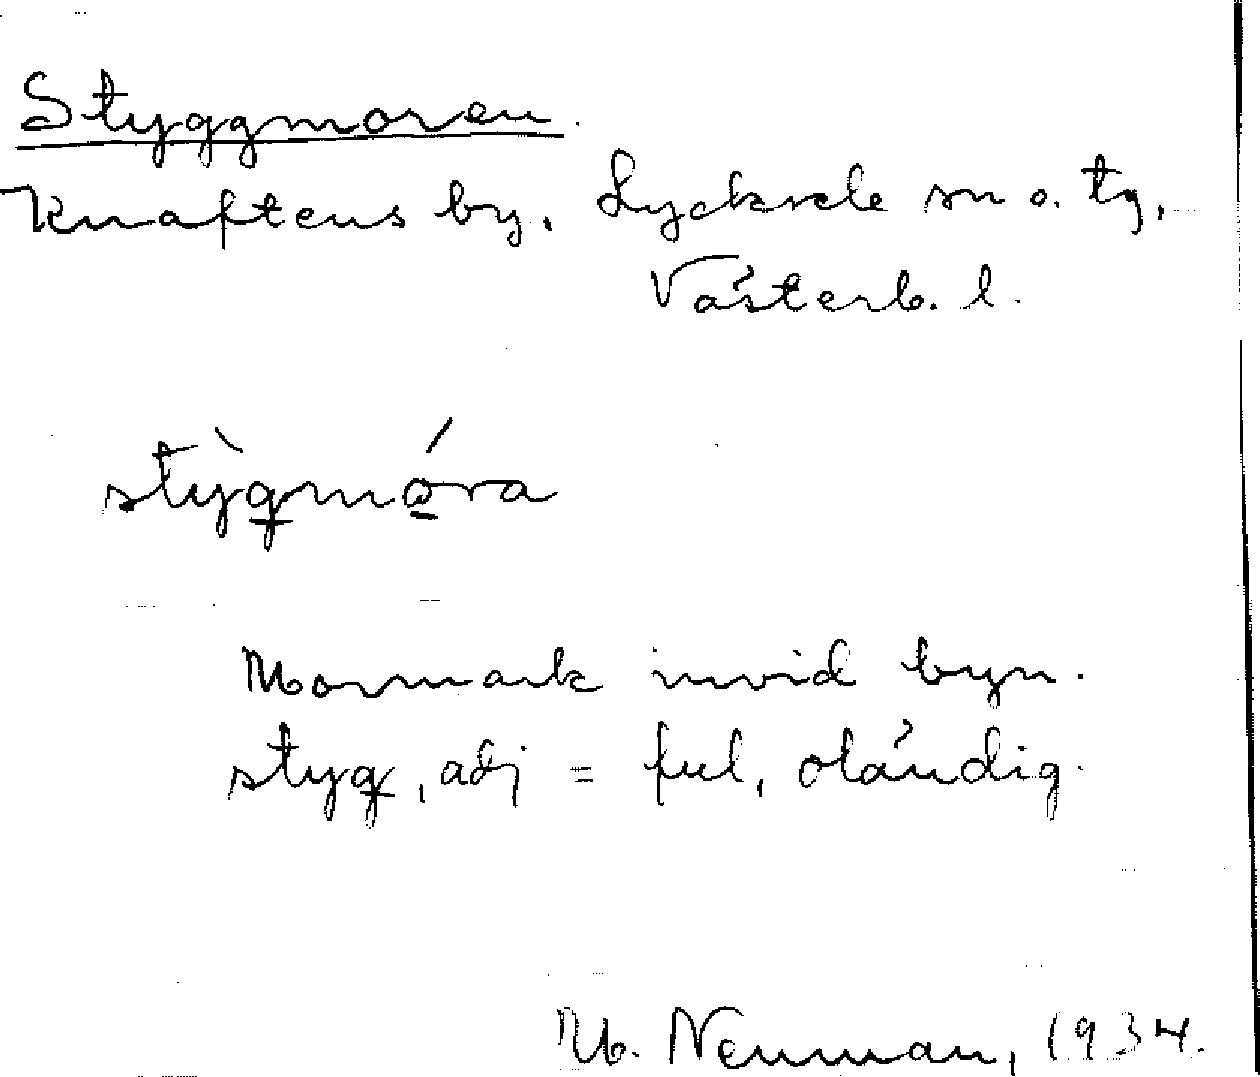 Styggmoren.
Knaftens by, Lycksele sn o. tg,
Västerb. l.
stỳgmóra
Mormark invid byn.
styg, adj = ful, oländig.
M. Neuman, 1934.